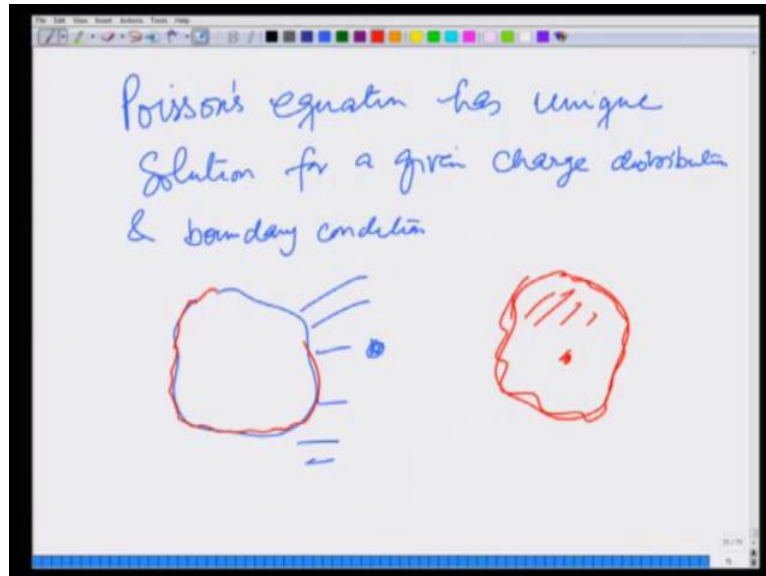 File Edit View Insert Actions Tools Help
Poisson's equation has unique
Solution for a given charge distribution
& boundary condition